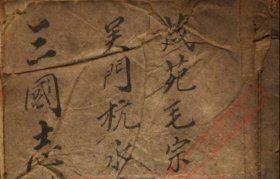 茂苑毛宗
吳門杭永
三國志